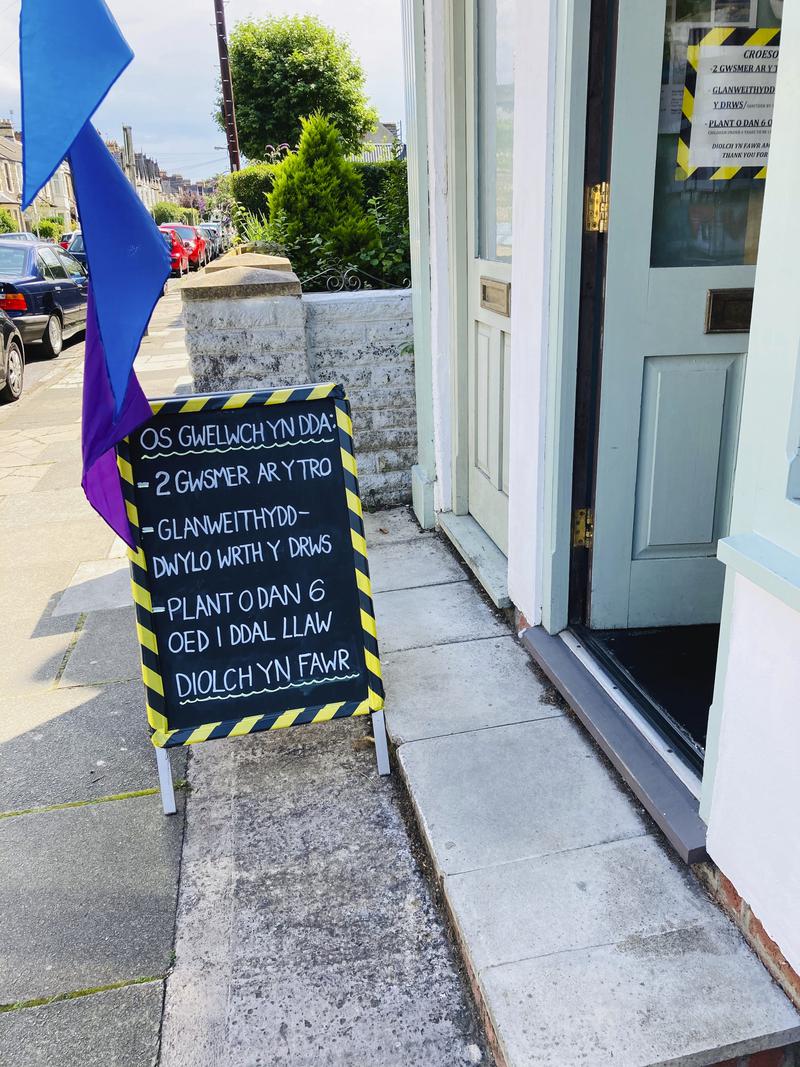 OS GWELWCH YN DDA:
- 2 GWSMER AR Y TRO
- GLANWEITHYDD-
DWYLO WRTH Y DRWS
- PLANT O DAN 6
OED I DDAL LLAW
DIOLCH YN FAWR
CROESO
-2 GWSMER AR Y
-GLANWEITHYDD
Y DRWS/
-PLANT O DAN 6 O
DIOLCH YN FAWR
THANK YOU FOR